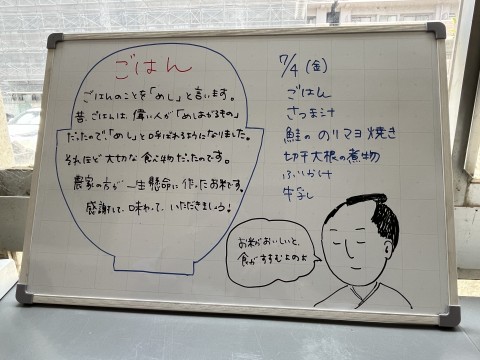 ごはん
ごはんのことを「めし」と言います。
昔、ごはんは、偉い人が「めしあがるもの」
だったので、「めし」と呼ばれるようになりました。
それほど大切な食べ物だったのです。
農家の方が一生懸命に作ったお米です。
感謝して、味わって、いただきましょう!
7/4(金)
ごはん
さつま汁
鮭ののりマヨ焼き
切干大根の煮物
ふりかけ
牛乳
お米がおいしいと、
食がすすむよのぉ